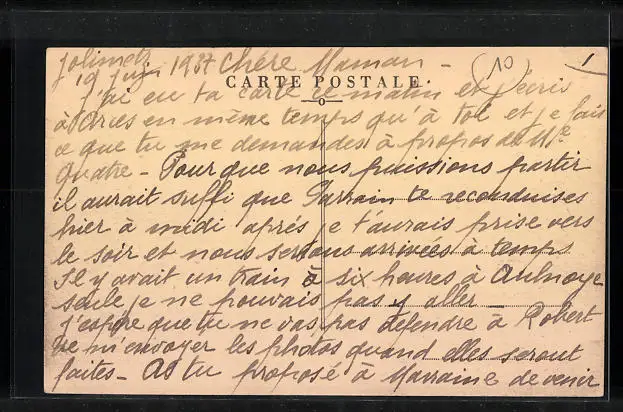 Jolimetz
19 juin 1937 Chère Maman -
(10) 1
CARTE POSTALE
J'ai eu ta carte ce matin et j'écris
à Arces en même temps qu'à toi et je fais
ce que tu me demandes à propos de Mr
Quatre - Pour que nous puissions partir
il aurait suffi que Parrain te reconduises
hier à midi après je t'aurais prise vers
le soir et nous serions arrivées à temps
Il y avait un train à six heures à Aulnoye
seule je ne pouvais pas y aller
J'espère que tu ne vas pas défendre à Robert
de m'envoyer les photos quand elles seront
faites - As tu proposé à Marraine de venir